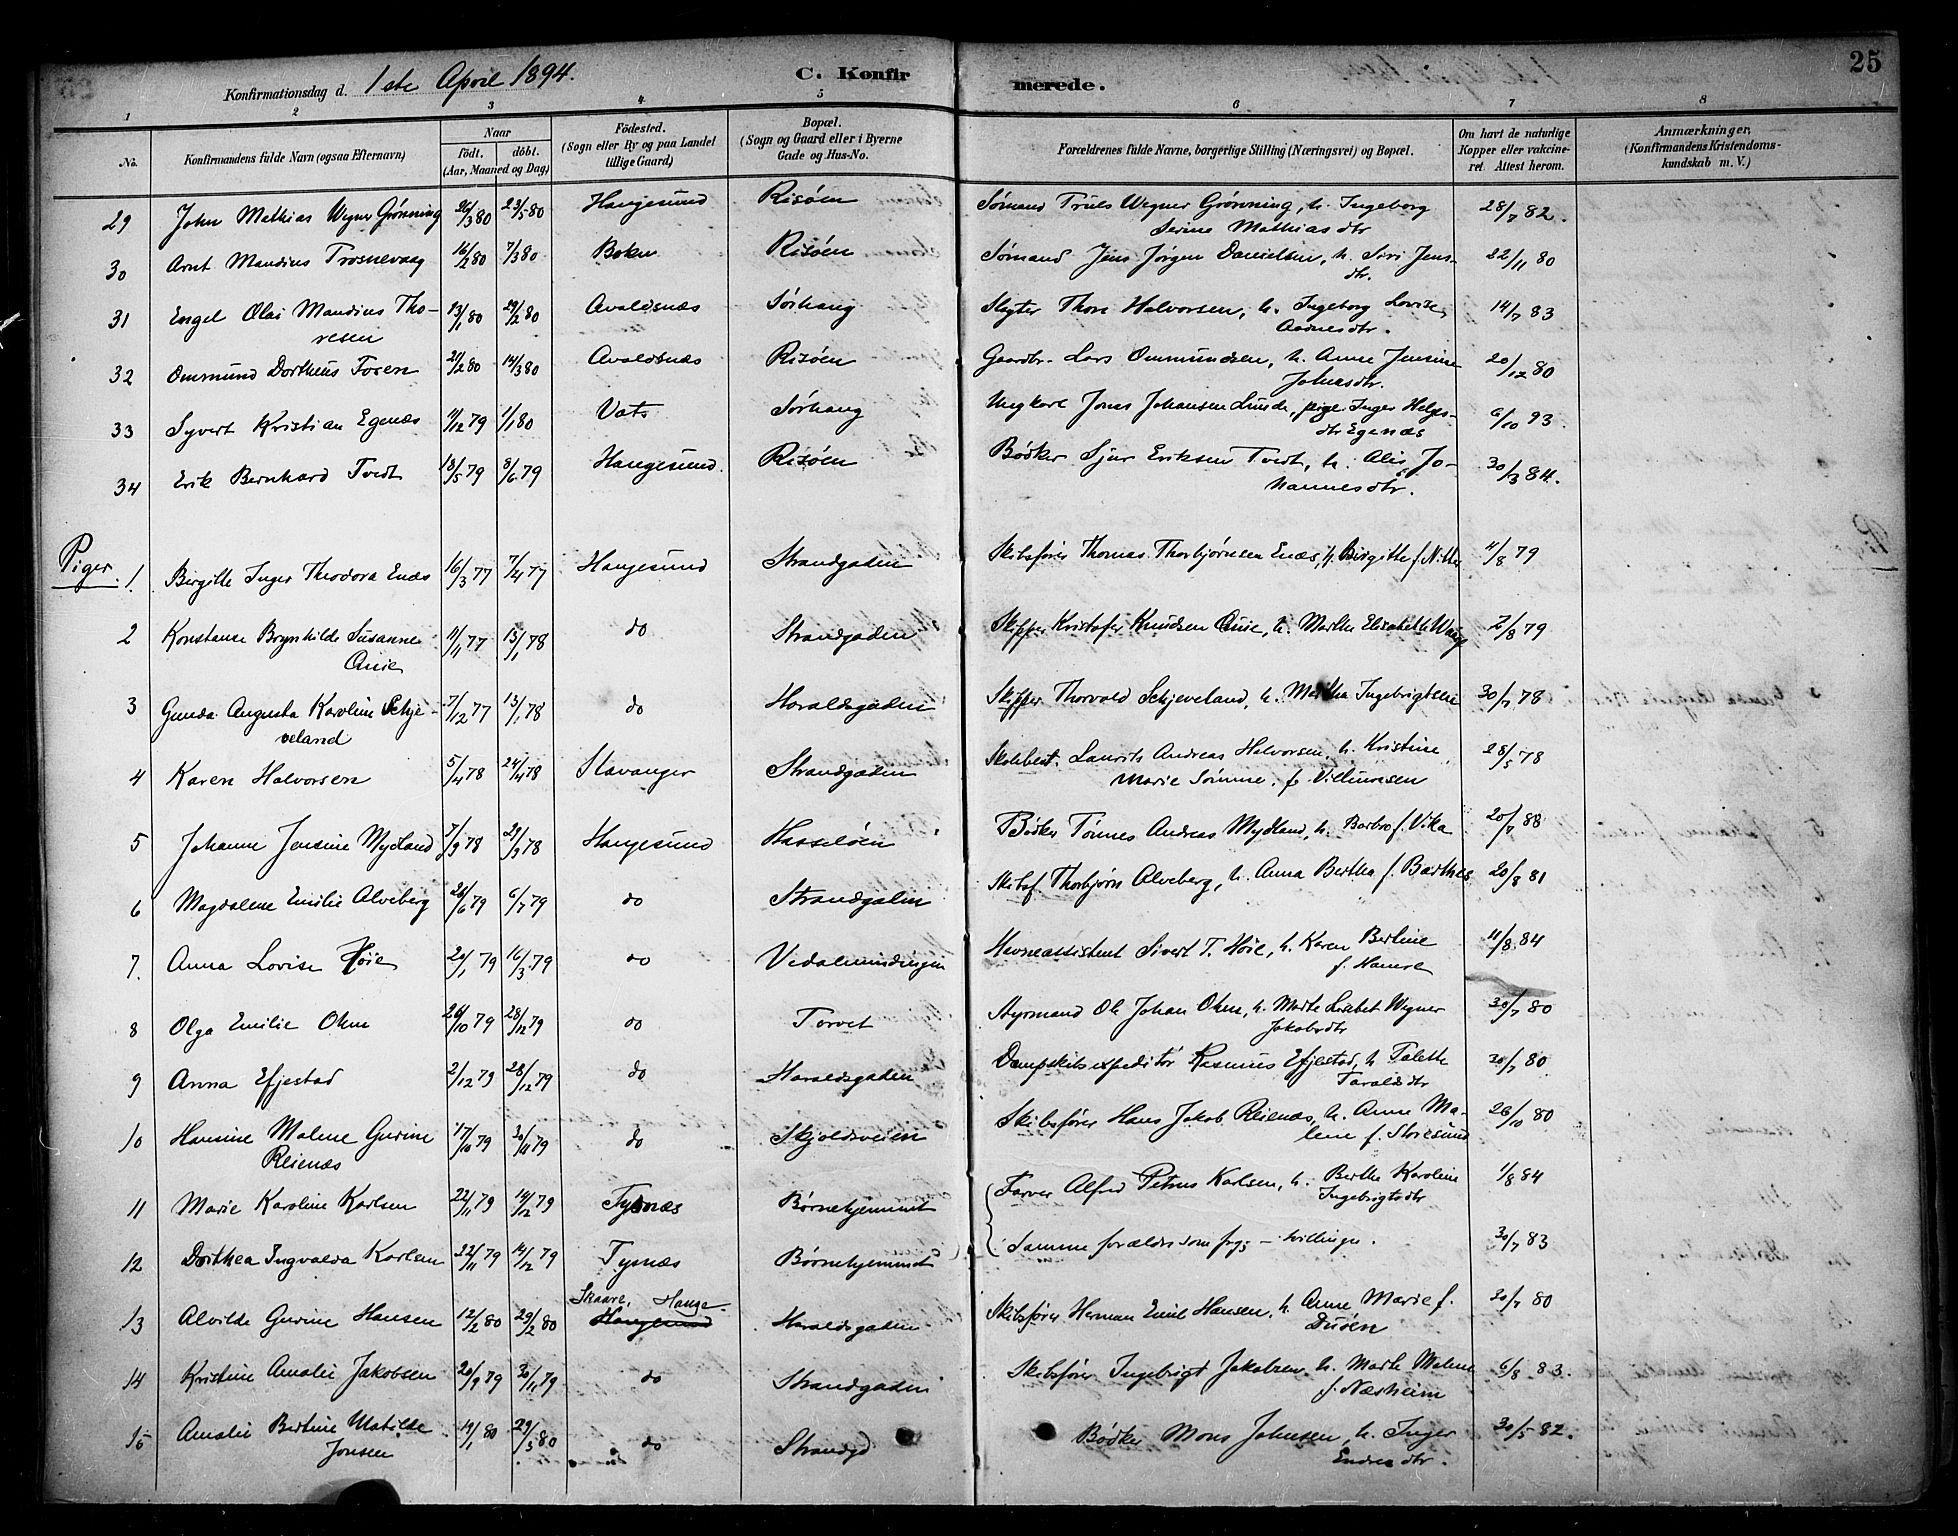 25
Konfirmationsdag d. 1ste April 1894.
C. Konfirmerede.
1 2 3 4 5 6 7 8
No.
Konfirmandens fulde Navn (ogsaa Efternavn)
Naar
födt. döbt.
(Aar, Maaned og Dag)
Födested.
(Sogn eller By og paa Landet
tillige Gaard)
Bopæl.
(Sogn og Gaard eller i Byerne
Gade og Hus-No.
Forældrenes fulde Navne, borgerlige Stilling (Næringsvei) og Bopæl.
Om havt de naturlige
Kopper eller vakcine-
ret. Attest herom.
Anmærkninger.
(Konfirmandens Kristendoms-
kundskab m. V.)
29 John Mathias Wegner Grønning 26/3 80 23/5 80 Haugesund Risøen Sømand Truls Wegner Grønning, h. Ingeborg 28/7 82.
Serine Mathiasdtr
30 Arnt Mandius Trosnevaag 16/2 80 7/3 80 Bokn Risøen Sømand Jens Jørgen Danielsen, h. Siri Jens- 22/11 80
dtr.
31 Engel Olai Mandius Tho- 13/1 80 29/2 80 Avaldsnæs Sørhaug Slagter Thore Halvorsen, h. Ingeborg Lovise 14/7 83
resen Aadnesdtr.
32 Ommund Dortheus Fosen 21/2 80 14/3 80 Avaldsnæs Risøen Gaardbr. Lars Ommundsen, h. Anne Jensine 20/12 80
Johnsdtr.
33 Syvert Kristian Egenæs 11/12 79 1/1 80 Vats Sørhaug Ungkarl Jonas Johansen Lunde, pige Inger Helges- 6/10 93
dtr Egenæs
34 Erik Bernhard Tvedt 18/5 79 8/6 79 Haugesund. Risøen Bødker Sjur Eriksen Tvedt, h. Alis Jo- 30/3 84.
hannesdtr.
Piger.
1 Birgitte Inger Theodora Enæs 16/3 77 7/4 77 Haugesund Strandgaden Skibsfører Thomas Thorbjørnsen Enæs, h. Birgitte f. 4/8 79
2 Konstanse Brynhilde Susanne 11/11 77 13/1 78 do Strandgaden Skipper Kristofer Knudsen Quie, h. Marthe Elisabeth 2/8 79
Quie
3 Gunda Augusta Karoline Schje- 7/12 77 13/1 78 do Haraldsgaden Skipper Thorvald Schjeveland, h. Martha Ingebrigtsen 30/7 78
veland
4 Karen Halvorsen 5/4 78 24/4 78 Stavanger Strandgaden Skolebest. Laurits Andreas Halvorsen, h. Kristine 28/5 78
Marie Sømme, f. Villumsen
5 Johanne Jensine Mydland 7/9 78 29/9 78 Haugesund Hasseløen Bødker Tønnes Andreas Mydland, h. Barbro f. Vika 20/7 88
6 Magdalene Emilie Alveberg 26/6 79 6/7 79 do Strandgaden Skibsf. Thorbjørn Alveberg, h. Anna Bertha f. Barthes 20/8 81
7. Anna Lovise Høie 20/1 79 16/3 79 do Vedalmindingen Havneassistent Sivert T. Høie, h. Karen Bertine 11/8 84
f. Hamre
8 Olga Emilie Ohm 26/10 79 28/12 79 do Torvet Styrmand Ole Johan Ohm, h. Marte Lisabet Wegner 30/7 80
Jakobsdtr
9 Anna Efjestad 2/12 79 28/12 79 do Haraldsgaden Dampskibsexpeditør Rasmus Efjestad, h. Talette 30/7 80
Taraldsdtr
10 Hansine Malene Gurine 17/10 79 30/11 79 do Skjoldsveien Skibsfører Hans Jakob Reienæs, h. Anne Ma- 26/10 80
Reienæs lene f. Storesund
11 Marie Karoline Karlsen 22/11 79 14/12 79 Tysnæs Børnehjemmet Farver Alfred Petrus Karlsen, h. Berthe Karoline 1/8 84
Ingebrigtsdtr
12 Dorthea Ingvalda Karlsen 22/11 79 14/12 79 Tysnæs Børnehjemmet Samme forældre som frg; – tvillinger. 30/7 83
Skaare, Hauge-
13 Alvilde Gurine Hansen 12/2 80 29/2 80 Haugesund Haraldsgaden Skibsfører Herman Emil Hansen, h. Anne Marie f. 20/7 80
Dusøen
14 Kristine Amalie Jakobsen 20/9 79 30/11 79 do Strandgaden Skibsfører Ingebrigt Jakobsen h. Marte Malene 6/8 83.
f. Næsheim
15 Amalie Bertine Matilde 19/1 80 29/3 80 do Strandgd Bødker Mons Johnsen, h. Inger 30/5 82.
Jonsen Endresdtr.